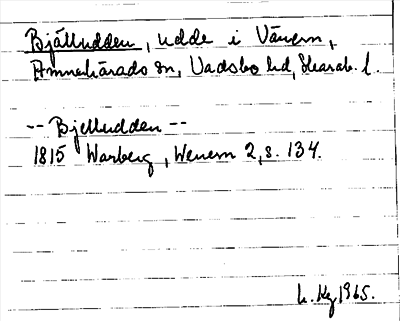 Bjälludden, udde i Vänern,
Amnehärads sn, Vadsbo hd, Skarab. l.
-- Bjelludden --
1815 Warberg, Wenern 2, s. 134.
1965.